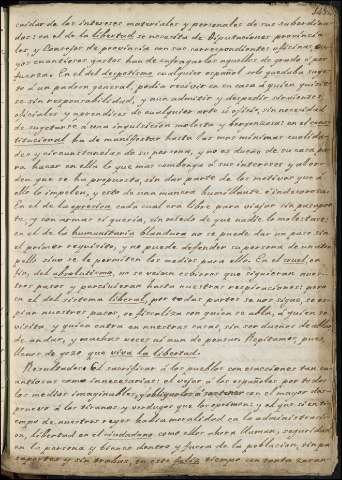 cuidar de los intereses materiales y personales de sus subordina-
dos: en el de la libertad se necesita de Diputaciones provincia-
les, y Consejos de provincia con sus correspondientes oficinas, cu-
yos cuantiosos gastos han de sufragarlos aquellos de grado ó por
fuerza. En el del despotismo cualquier español solo quedaba suge-
to á un padron general, podia recivir en su casa á quien quisie-
se sin responsabilidad, y aun admitir y despedir sirvientes
oficiales y aprendices de cualquier arte ú oficio, sin necesidad
de sugetarse á una inquisicion molesta y bergonzosa: en el cons-
titucional ha de manifestar hasta las mas minimas cualida-
des y circunstancias de su persona, y no es dueño de su casa pa-
ra hacer en ella lo que mas combenga á sus intereses y al or-
den que se ha propuesto, sin dar parte de los motivos que á
ello le impelen, y esto de una manera humillante é indecorosa.
En el de la opresion cada cual era libre para viajar sin pasapor-
te, y con armas si queria, sin miedo de que nadie lo molestase:
en el de la humanitaria blandura no se puede dar un paso sin
el primer requisito, y no puede defender su persona de un atro-
pello sino se le permiten los medios para ello. En el cruel, en
fin, del absolutismo, no se veian esbirros que siguieran nues-
tros pasos y persiguieran hasta nuestras respiraciones: pero
en el del sistema liberal, por todas partes se nos sigue, se es-
pian nuestros pasos, se fiscaliza con quien se abla, á quien se
visita, y quien entra en nuestras casas, sin ser dueños de ablar,
de andar, y muchas veces ni aun de pensar. Repitamos, pues,
llenos de gozo, que viva la libertad.
Resultados: El sacrificar á los pueblos con esacciones tan cu-
antiosas como innecesarias: el vejar á los españoles por todos
los medios imaginables, y obligarlos á
tiempo de nuestros reyes habia moralidad en la administraci-
on, libertad en el ciudadano como ellos ahora llaman, seguridad
en la persona y bienes dentro y fuera de la poblacion, sin pa-
saportes y sin trabas, en este